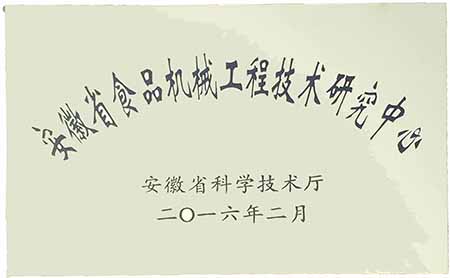 安徽省食品机械工程技术研究中心
安徽省科学技术厅
二〇一六年二月